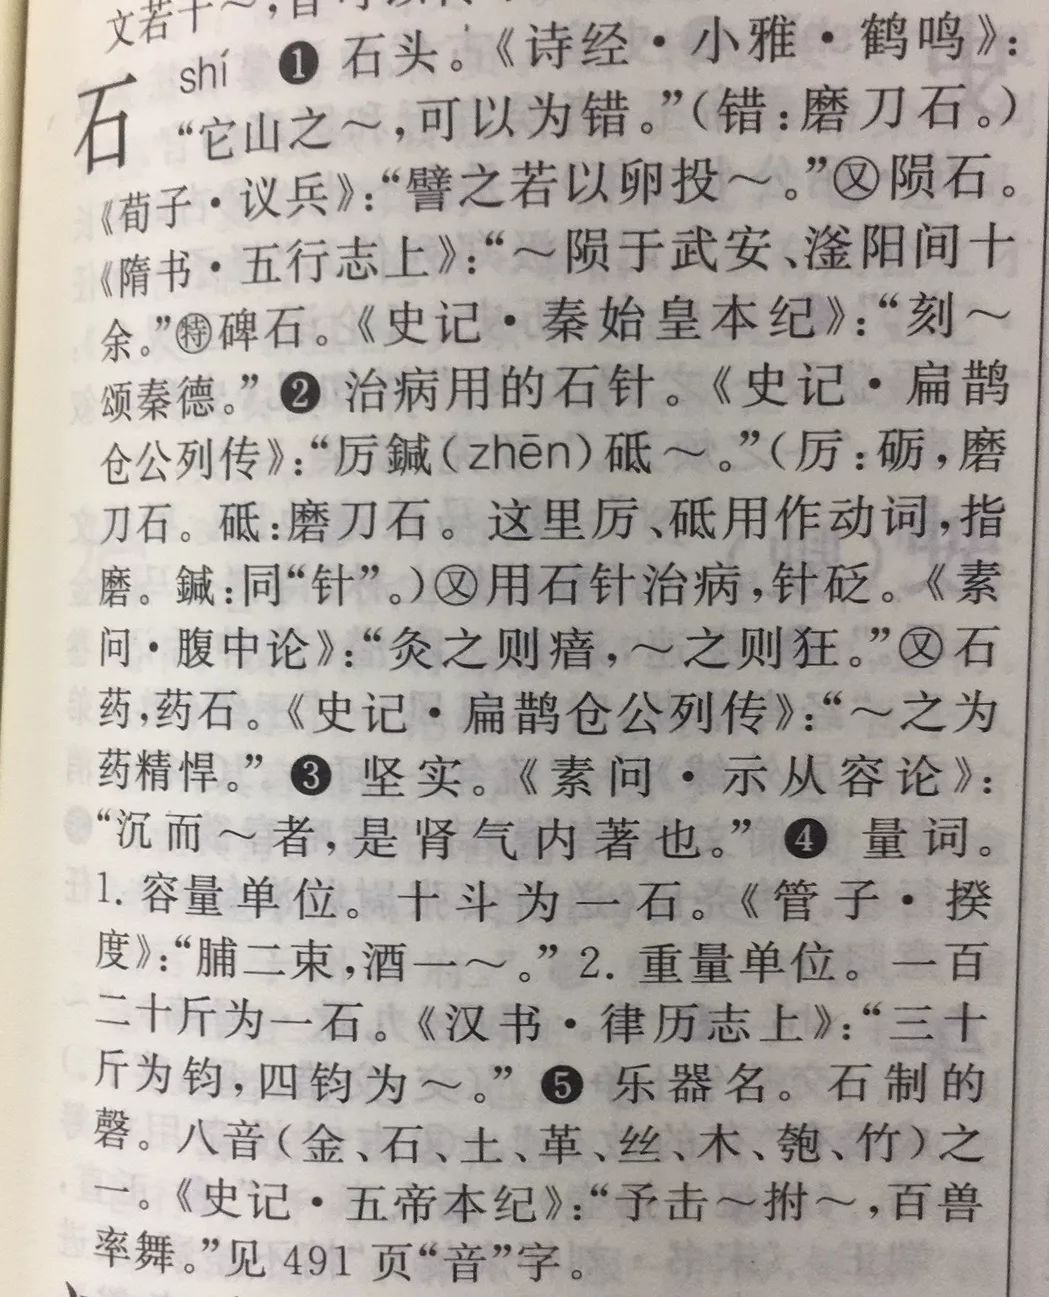 文若干～，皆可以
石 shí ❶ 石头。《诗经·小雅·鹤鸣》：
“它山之～，可以为错。”（错：磨刀石。）
《荀子·议兵》：“譬之若以卵投～。”㊡陨石。
《隋书·五行志上》：“～陨于武安、滏阳间十
余。”㊕碑石。《史记·秦始皇本纪》：“刻～
颂秦德。”❷ 治病用的石针。《史记·扁鹊
仓公列传》：“厉鍼（zhēn）砥～。”（厉：砺，磨
刀石。砥：磨刀石。这里厉、砥用作动词，指
磨。鍼：同“针”。）㊡用石针治病，针砭。《素
问·腹中论》：“灸之则瘖，～之则狂。”㊡石
药，药石。《史记·扁鹊仓公列传》：“～之为
药精悍。”❸ 坚实。《素问·示从容论》：
“沉而～者，是肾气内著也。”❹ 量词。
1. 容量单位。十斗为一石。《管子·揆
度》：“脯二束，酒一～。”2. 重量单位。一百
二十斤为一石。《汉书·律历志上》：“三十
斤为钧，四钧为～。”❺ 乐器名。石制的
磬。八音（金、石、土、革、丝、木、匏、竹）之
一。《史记·五帝本纪》：“予击～拊～，百兽
率舞。”见 491 页“音”字。